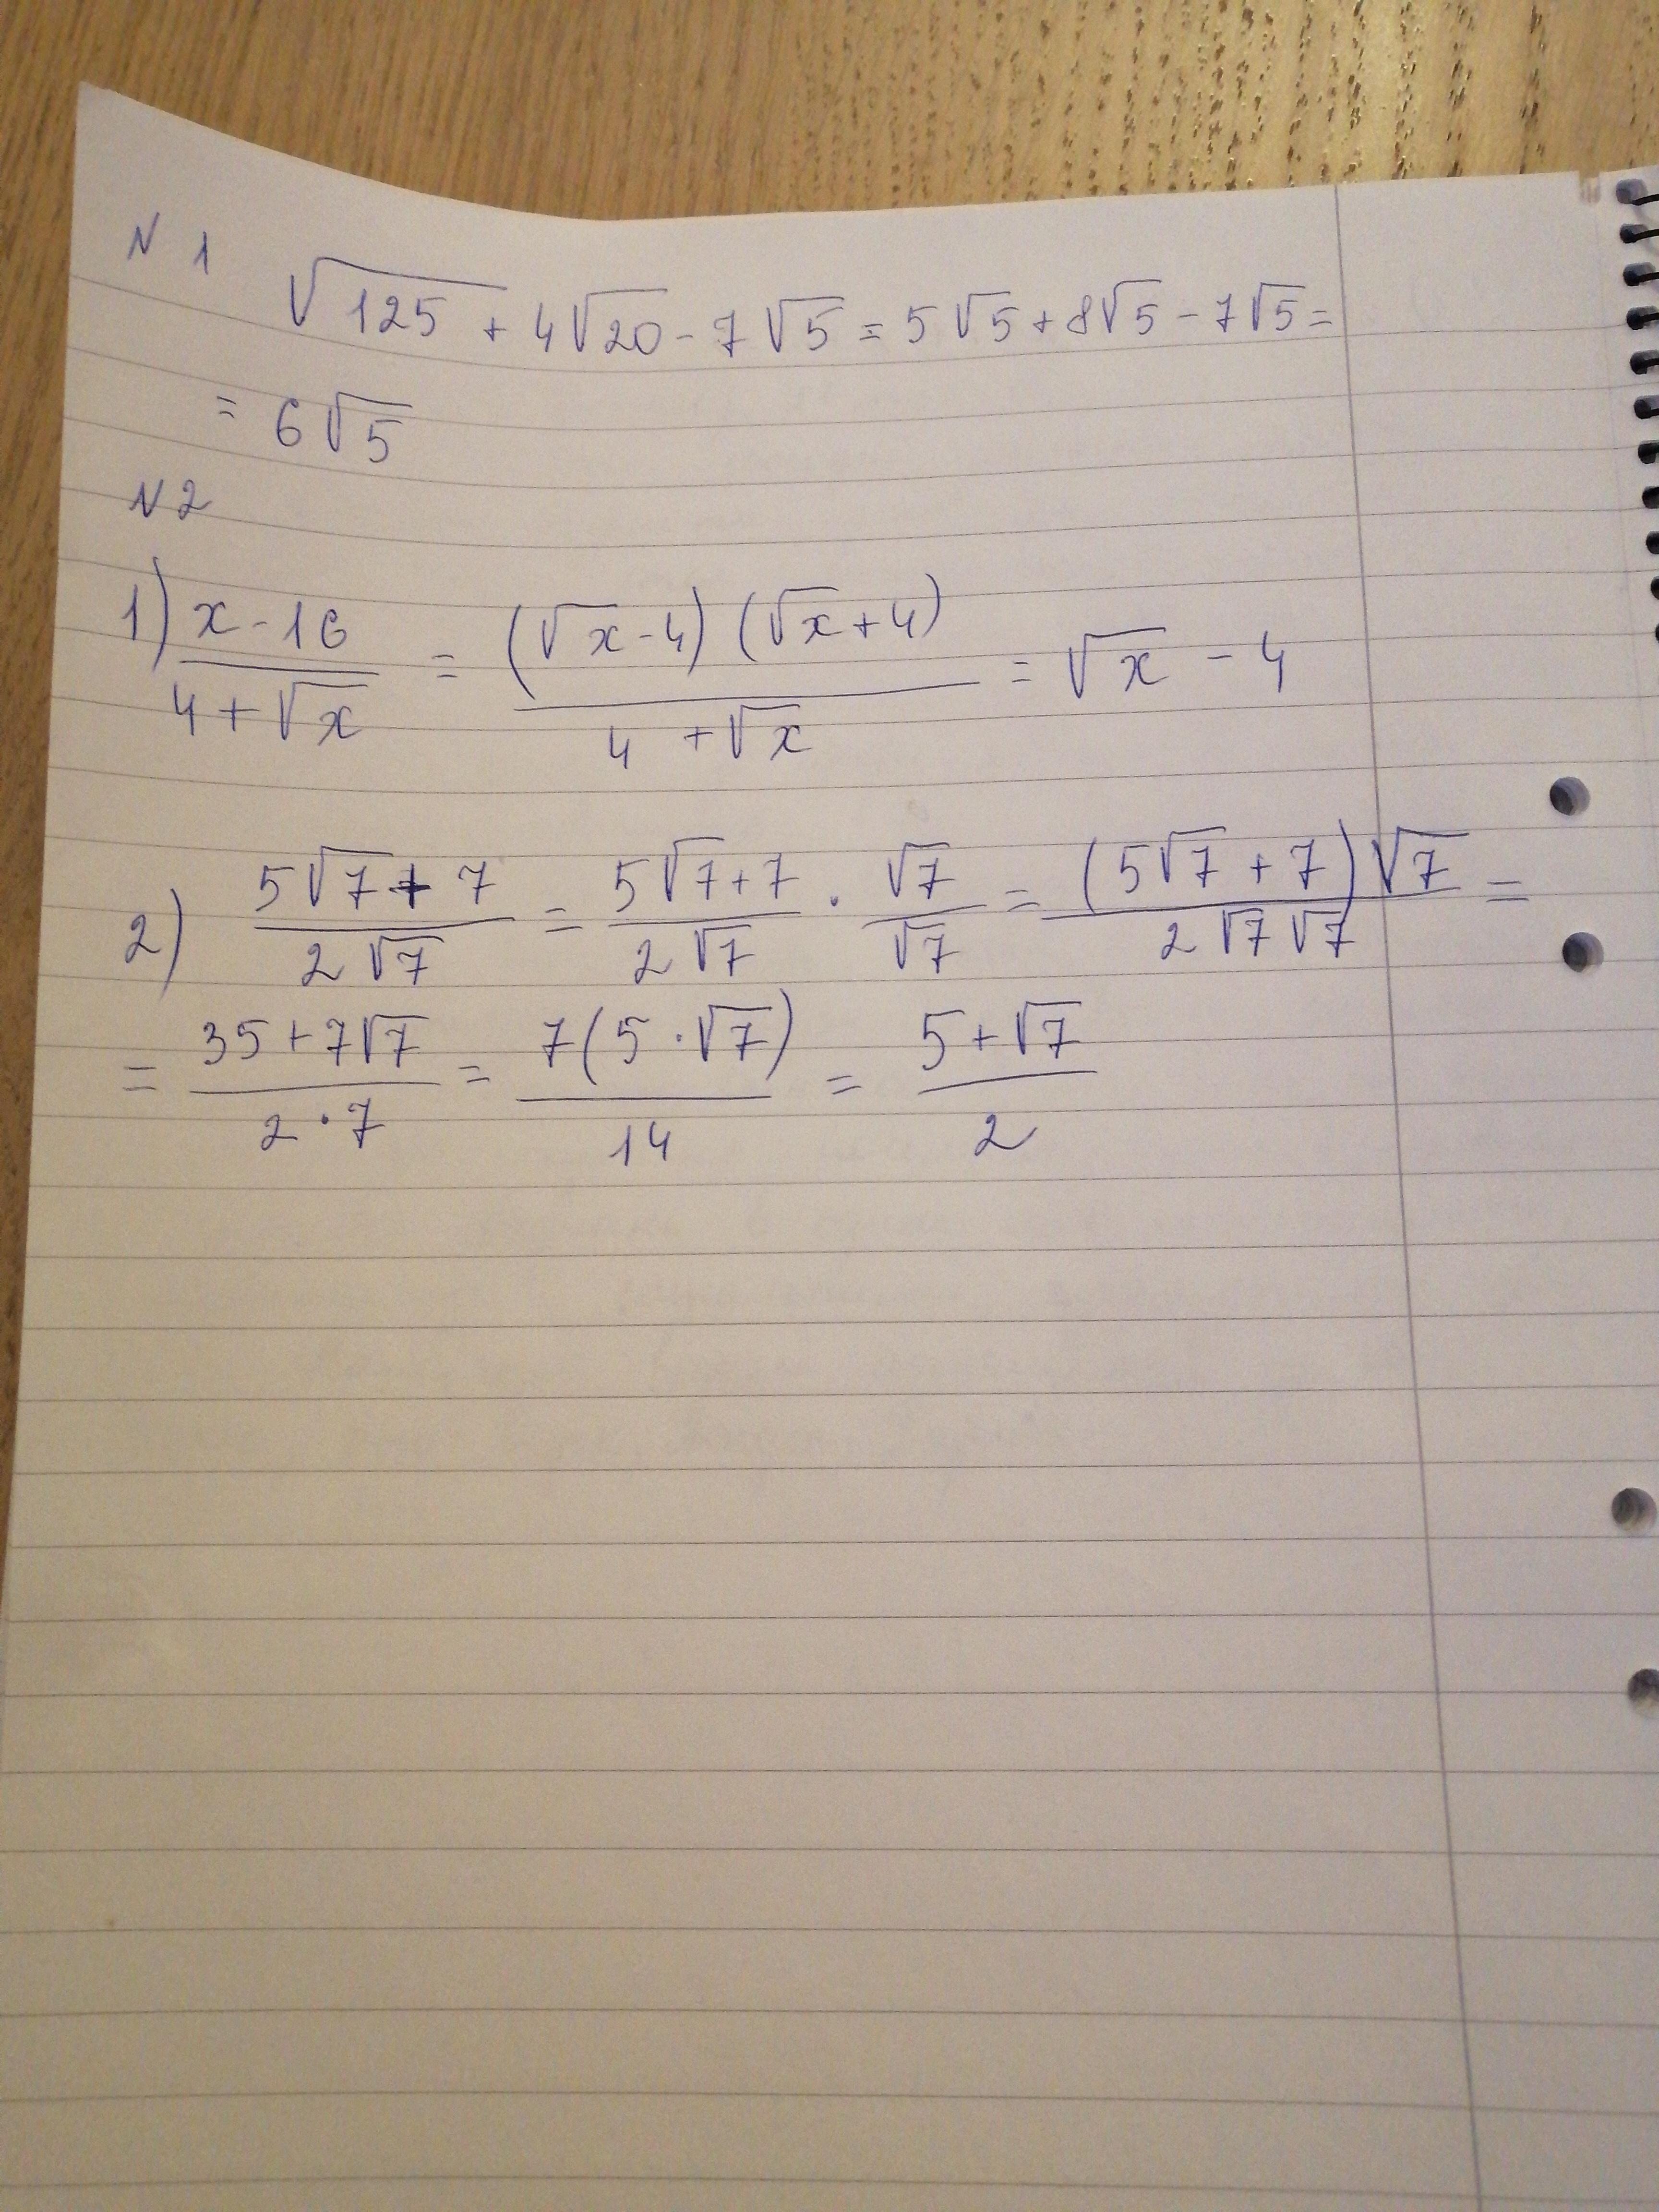 N 1
√125 + 4√20 - 7√5 = 5√5 + 8√5 - 7√5 =
= 6√5
N 2
1) (x - 16)/(4 + √x) = ((√x - 4)(√x + 4))/(4 + √x) = √x - 4
2) (5√7 + 7)/(2√7) = (5√7 + 7)/(2√7) · √7/√7 = ((5√7 + 7)√7)/(2√7√7) =
= (35 + 7√7)/(2 · 7) = (7(5 · √7))/14 = (5 + √7)/2